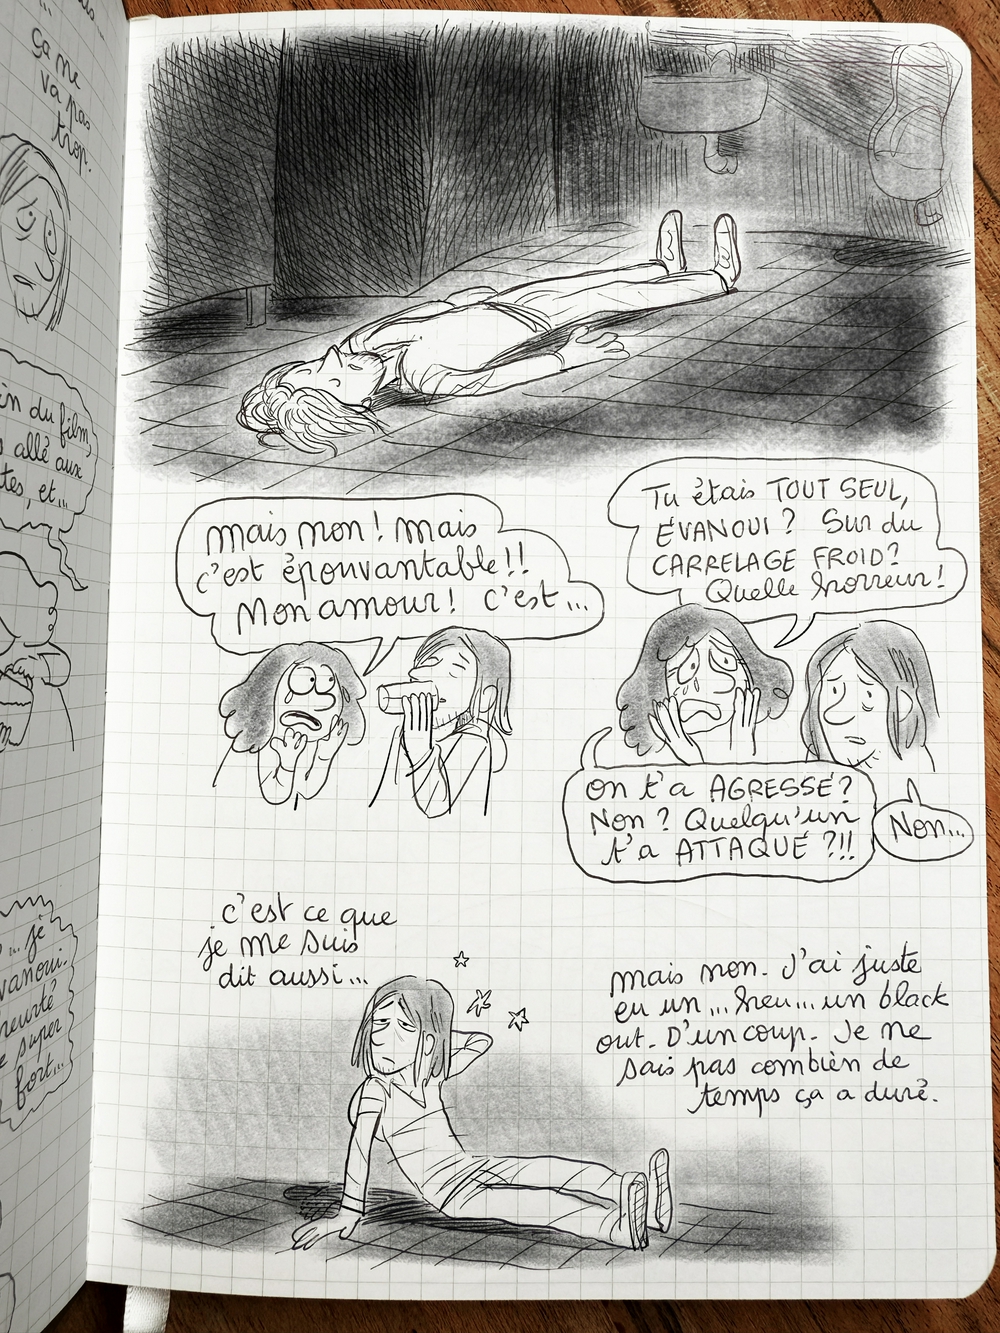 ça ne
va pas
trop.
du film,
allé aux
et...
je
heurté
super
fort...
mais non ! mais
c'est épouvantable !!
Mon amour ! c'est...
Tu étais TOUT SEUL,
ÉVANOUI ? Sur du
CARRELAGE FROID ?
Quelle horreur !
on t'a AGRESSÉ ?
Non ? Quelqu'un
t'a ATTAQUÉ ?!!
Non...
c'est ce que
je me suis
dit aussi...
mais non. J'ai juste
eu un... heu... un black
out. D'un coup. Je ne
sais pas combien de
temps ça a duré.